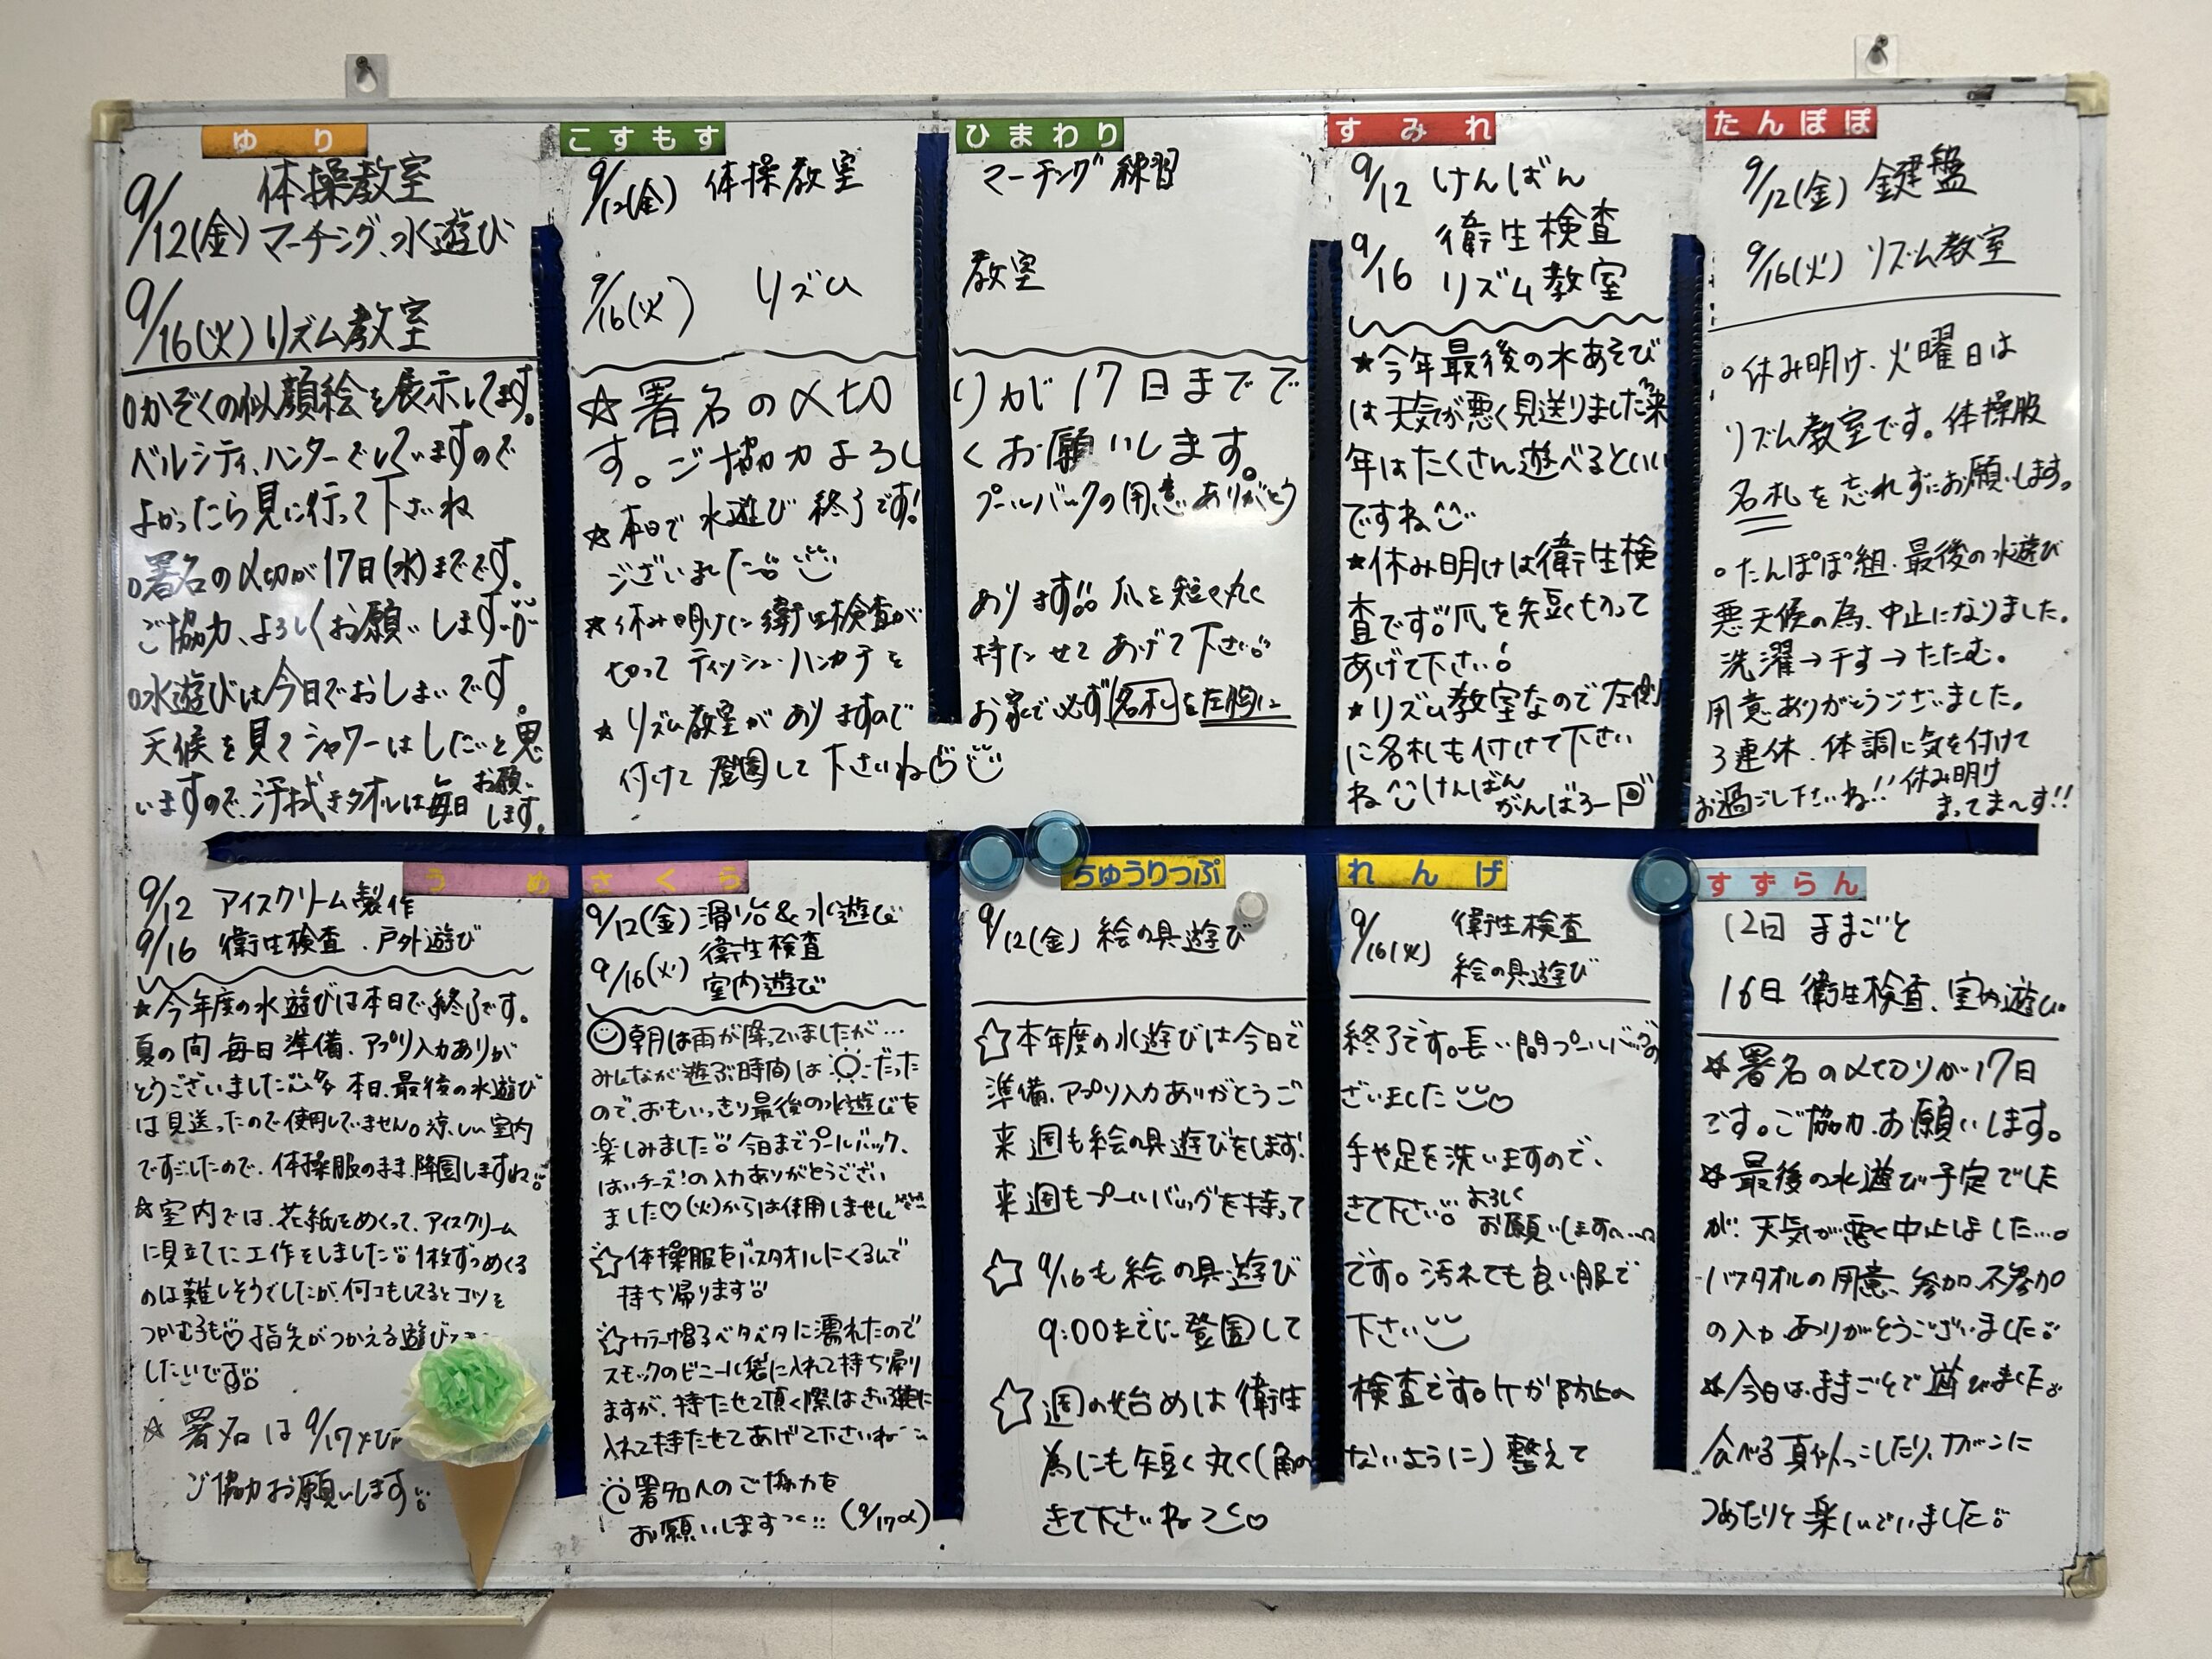 ゆり
体操教室
9/12(金) マーチング、水遊び
9/16(火) リズム教室
○かぞくの似顔絵を展示してます。
ベルシティ、ハンターでしていますので
よかったら見に行って下さいね
○署名の〆切が17日(水)までです。
ご協力、よろしくお願いします
○水遊びは今日でおしまいです。
天候を見てシャワーはしたいと思
いますので、汗拭きタオルは毎日お願い
します。
こすもす ひまわり
9/12(金) 体操教室 マーチング練習
9/16(火) リズム教室
☆署名の〆切りが17日までで
す。ご協力よろしくお願いします。
☆本日で水遊び終了です! プールバックの用意ありがとう
ございました
☆休み明けに衛生検査があります 爪を短く丸く
切って ティッシュ・ハンカチを持たせてあげて下さい
☆リズム教室がありますので お家で必ず名札を左胸に
付けて登園して下さいね
すみれ
9/12 けんばん
9/16 衛生検査
リズム教室
★今年最後の水あそび
は天気が悪く見送りました 来
年はたくさん遊べるといい
ですね
★休み明けは衛生検
査です 爪を短く切って
あげて下さい!
★リズム教室なので左側
に名札も付けて下さい
ね けんばん
がんばろー
たんぽぽ
9/12(金) 鍵盤
9/16(火) リズム教室
○休み明け、火曜日は
リズム教室です。体操服
名札を忘れずにお願いします。
○たんぽぽ組、最後の水遊び
悪天候の為、中止になりました。
洗濯→干す→たたむ。
用意ありがとうございました。
3連休、体調に気を付けて
お過ごし下さいね!! 休み明け
まってま〜す!!
うめ
9/12 アイスクリーム製作
9/16 衛生検査、戸外遊び
★今年度の水遊びは本日で終了です。
夏の間毎日準備、アプリ入力ありが
とうございました 本日、最後の水遊び
は見送ったので使用していません。涼しい室内
ですごしたので、体操服のまま降園しますね
☆室内では、花紙をめくって、アイスクリーム
に見立てた工作をしました 1枚ずつめくる
のは難しそうでしたが、何コもしてるとコツを
つかむ子も♡指先がつかえる遊び
したいです
☆署名は9/17〆
ご協力お願いします
さくら
9/12(金) 滑り台&水遊び
9/16(火) 衛生検査
室内遊び
朝は雨が降っていましたが…
みんなが遊ぶ時間は だった
ので、おもいっきり最後の水遊びを
楽しみました 今日までプールバック、
はいチーズ!の入力ありがとうござい
ました♡(火)からは使用しません
☆体操服をバスタオルにくるんで
持ち帰ります
☆カラー帽子ベタベタに濡れたので
スモックのビニール袋に入れて持ち帰り
ますが、持たせて頂く際は
入れて持たせてあげて下さいね
署名へのご協力を
お願いします (9/17〆)
ちゅうりっぷ れんげ
9/12(金) 絵の具遊び 9/16(火) 衛生検査
絵の具遊び
☆本年度の水遊びは今日で終了です。長い間プールバッグの
準備、アプリ入力ありがとうございました♡
来週も絵の具遊びをします。手や足を洗いますので、
来週もプールバッグを持ってきて下さい よろしく
お願いします
☆9/16も絵の具遊びです。汚れても良い服で
9:00までに登園して下さい
☆週の始めは衛生検査です。ケガ防止の
為にも短く丸く(角のないように)整えて
きて下さいね♡
すずらん
12日 ままごと
16日 衛生検査、室内遊び
☆署名の〆切りが17日
です。ご協力お願いします。
☆最後の水遊び予定でした
が、天気が悪く中止しました…。
バスタオルの用意、参加、不参加
の入力ありがとうございました
☆今日は、ままごとで遊びました
食べる真似っこしたり、カバンに
つめたりと楽しんでいました